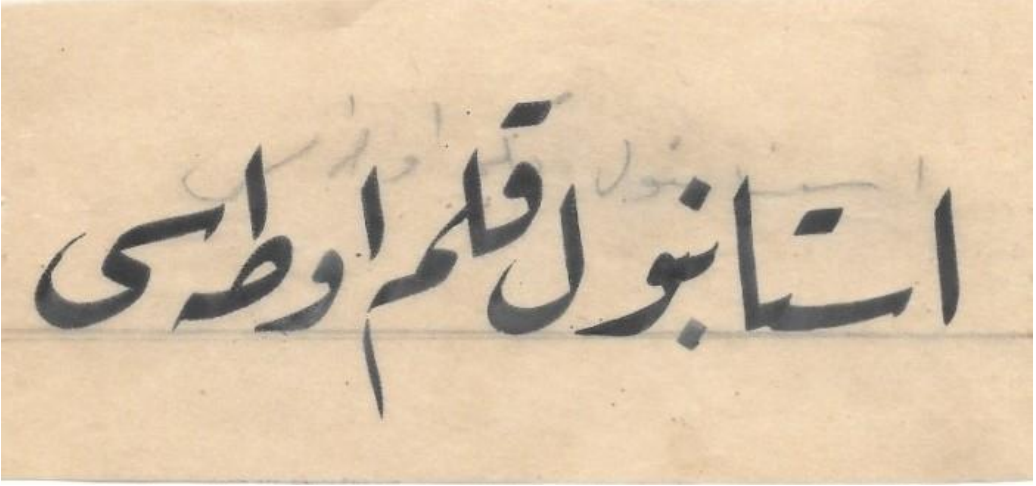 استانبول قلم اوطه سی